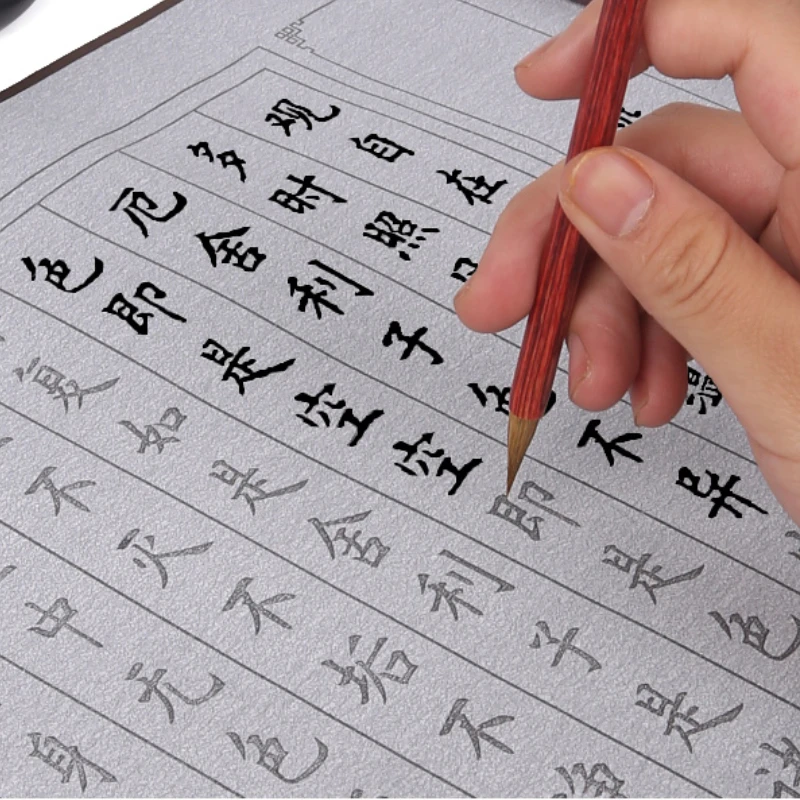 观自在
多时照
厄舍利子色不异
色即是空空即是色
复如是舍利子是
不灭不垢不净
中无色
身